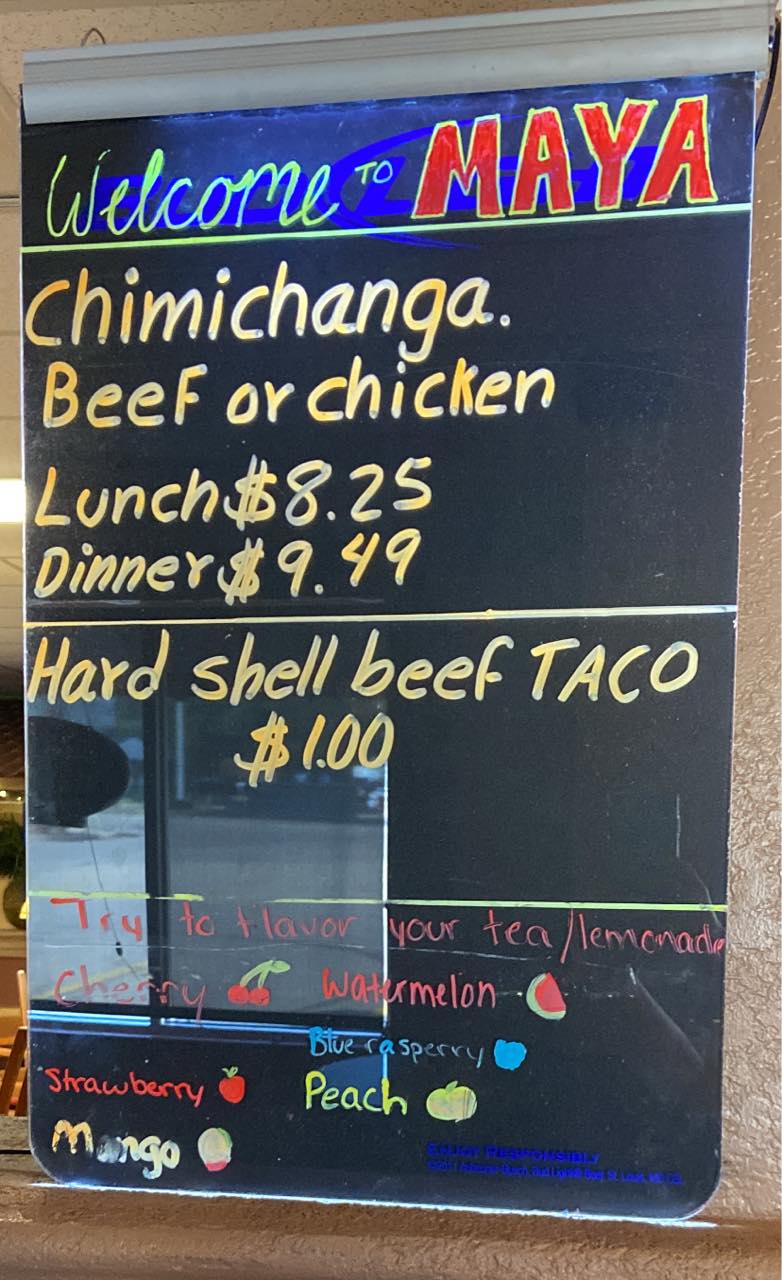 Welcome TO MAYA
Chimichanga.
Beef or chicken
Lunch $8.25
Dinner $9.49
Hard shell beef TACO
$1.00
Try to flavor your tea/lemonade
Cherry Watermelon
Blue rasperry
Strawberry Peach
Mango
ENJOY RESPONSIBLY